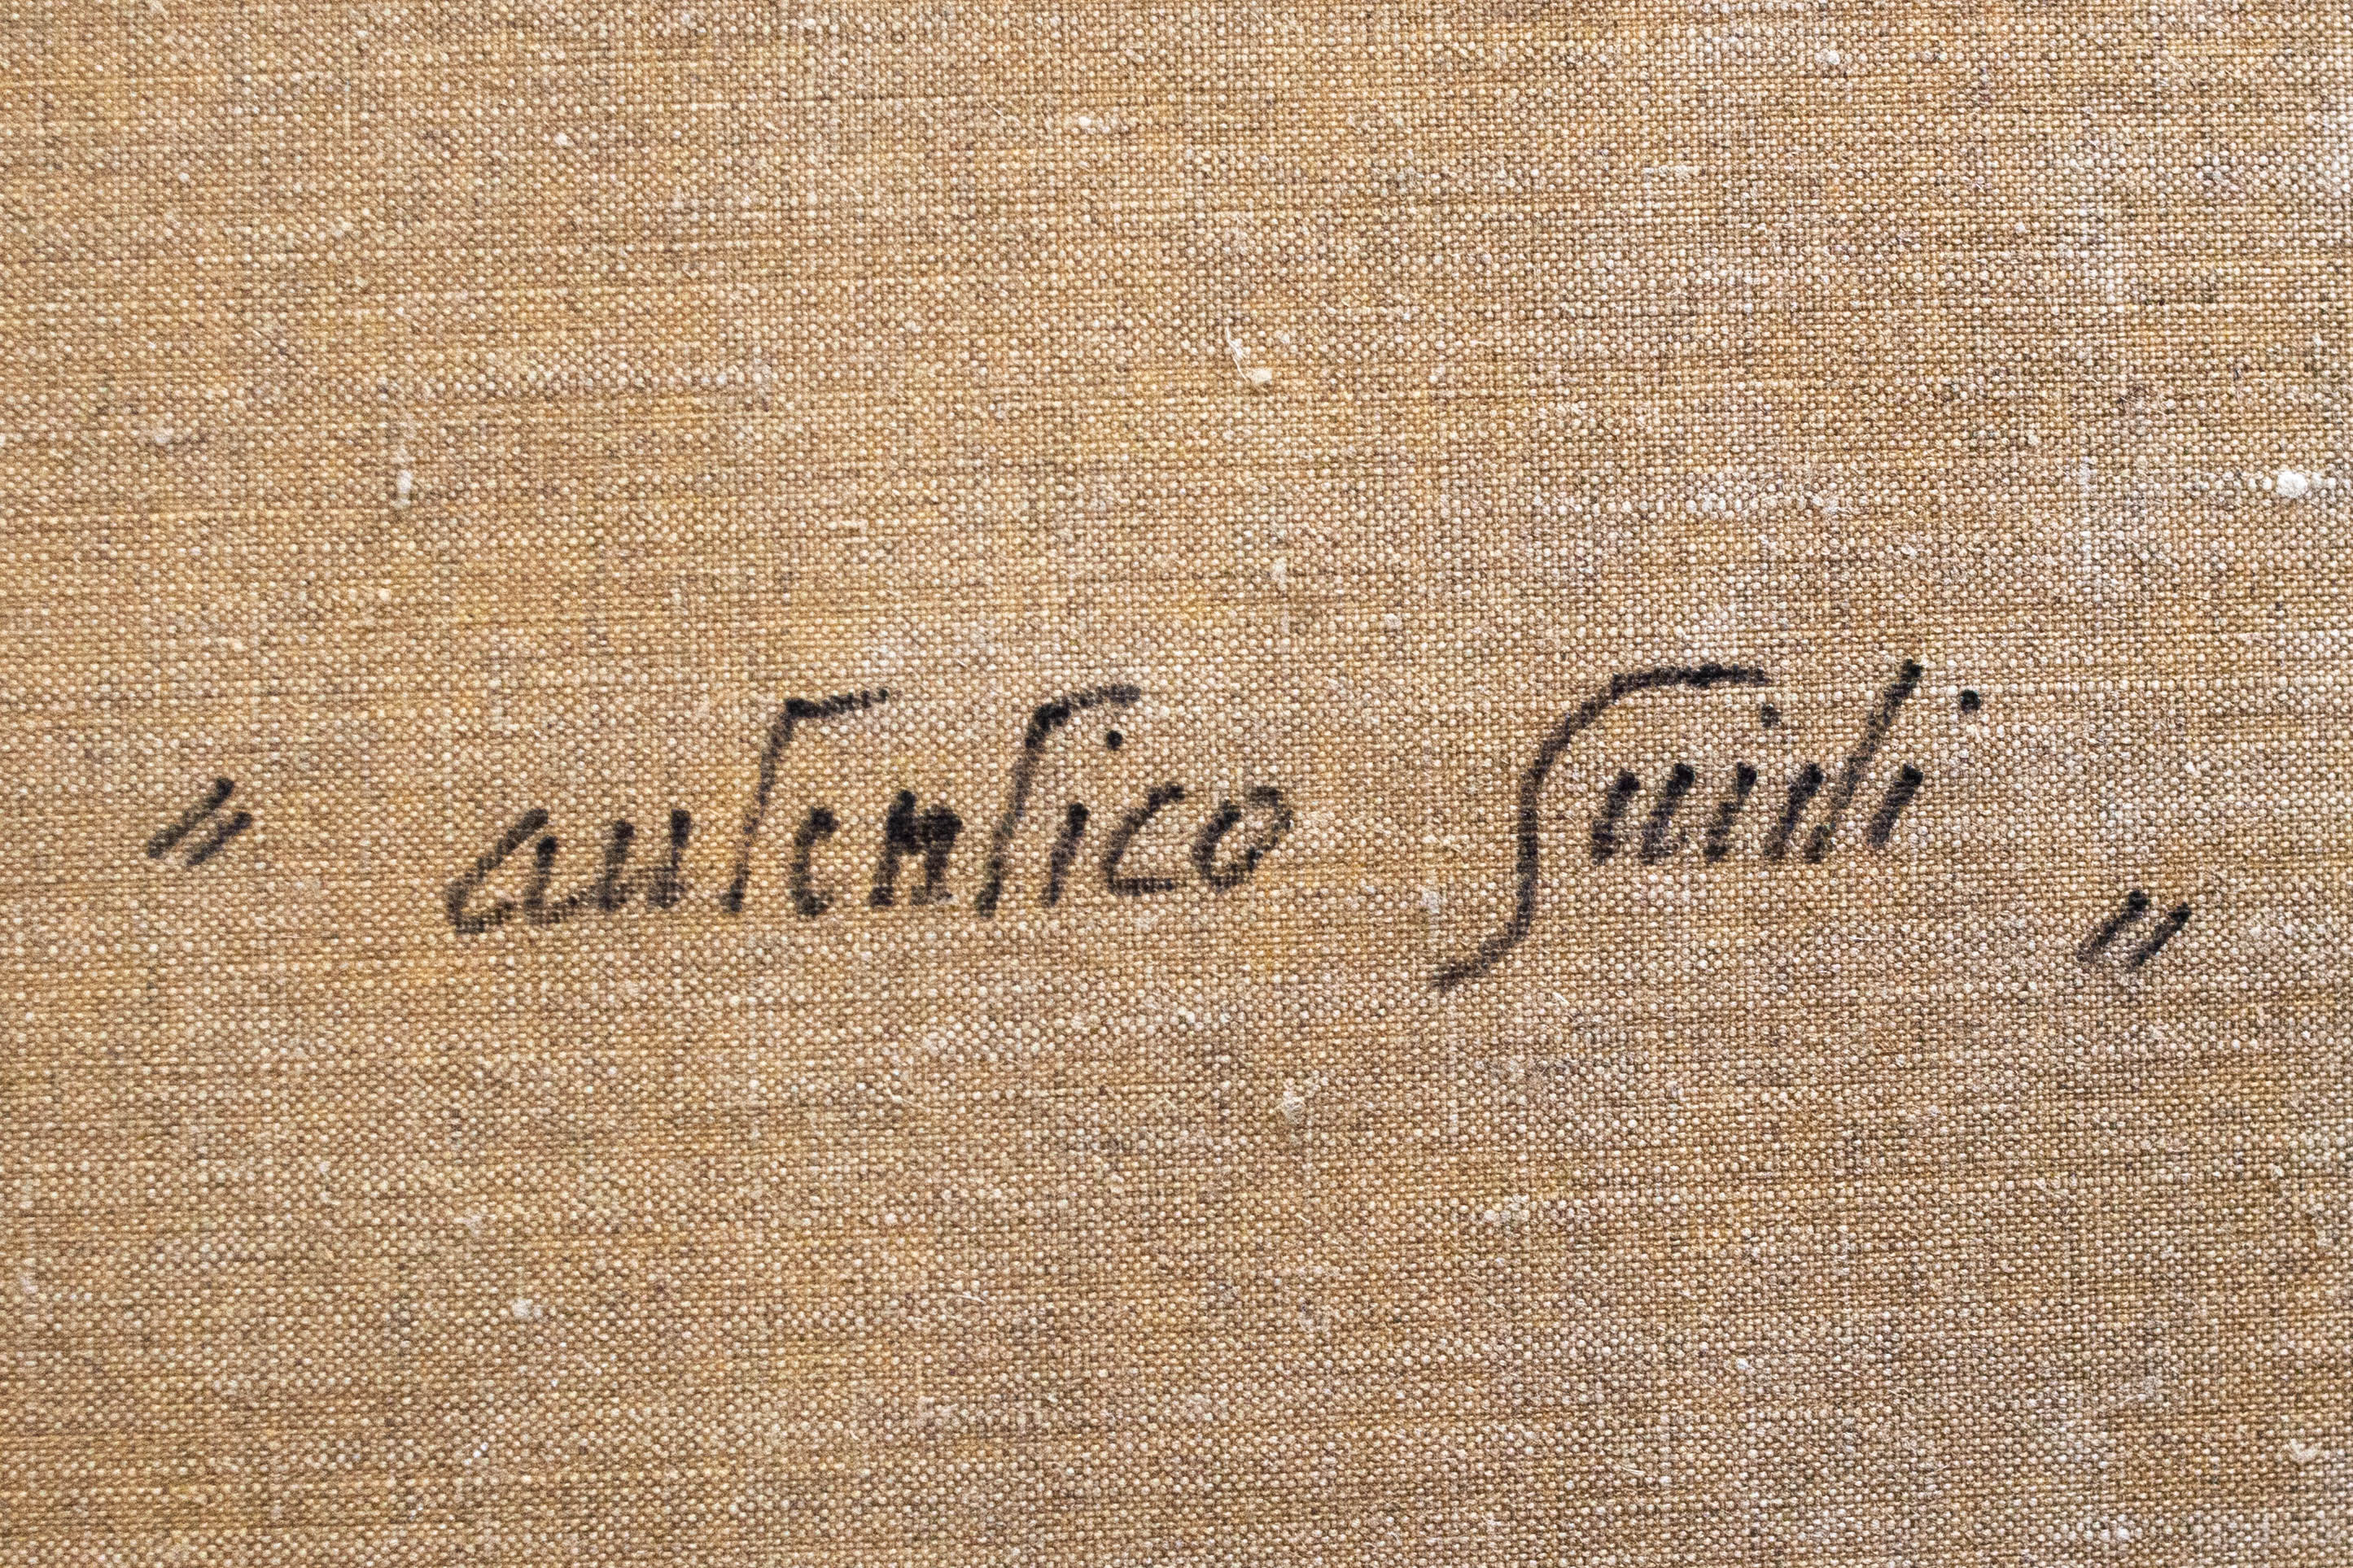 " autentico Guidi "